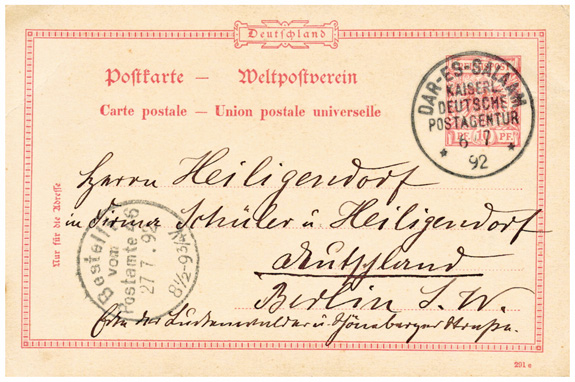 Deutschland
Postkarte — Weltpostverein
Carte postale — Union postale universelle
DAR-ES-SALAAM
KAISERL.
DEUTSCHE
POSTAGENTUR
6 7
92
10 PF
Nur für die Adresse
Herrn Heiligendorf
in Firma Schüler u Heiligendorf
Deutschland
Berlin S. W.
Ecke der Luckenwalder u Schöneberger Straße.
Bestellt
vom
Postamte
27 7. 92
8½-9½
291 e